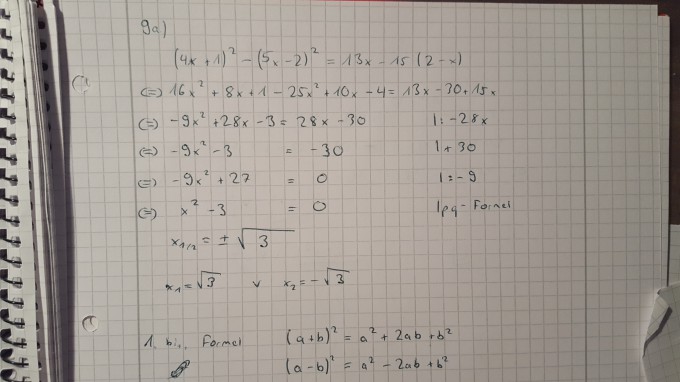 9a)
(4x + 1)² - (5x - 2)² = 13x - 15 (2 - x)
(=) 16x² + 8x + 1 - 25x² + 10x - 4 = 13x - 30 + 15x
(=) -9x² + 28x - 3 = 28x - 30 |: -28x
(=) -9x² - 3 = -30 | + 30
(=) -9x² + 27 = 0 |: -9
(=) x² - 3 = 0 | pq - Formel
x1/2 = ± √3
x1 = √3 v x2 = - √3
1. bi.. Formel (a + b)² = a² + 2ab + b²
(a - b)² = a² - 2ab + b²